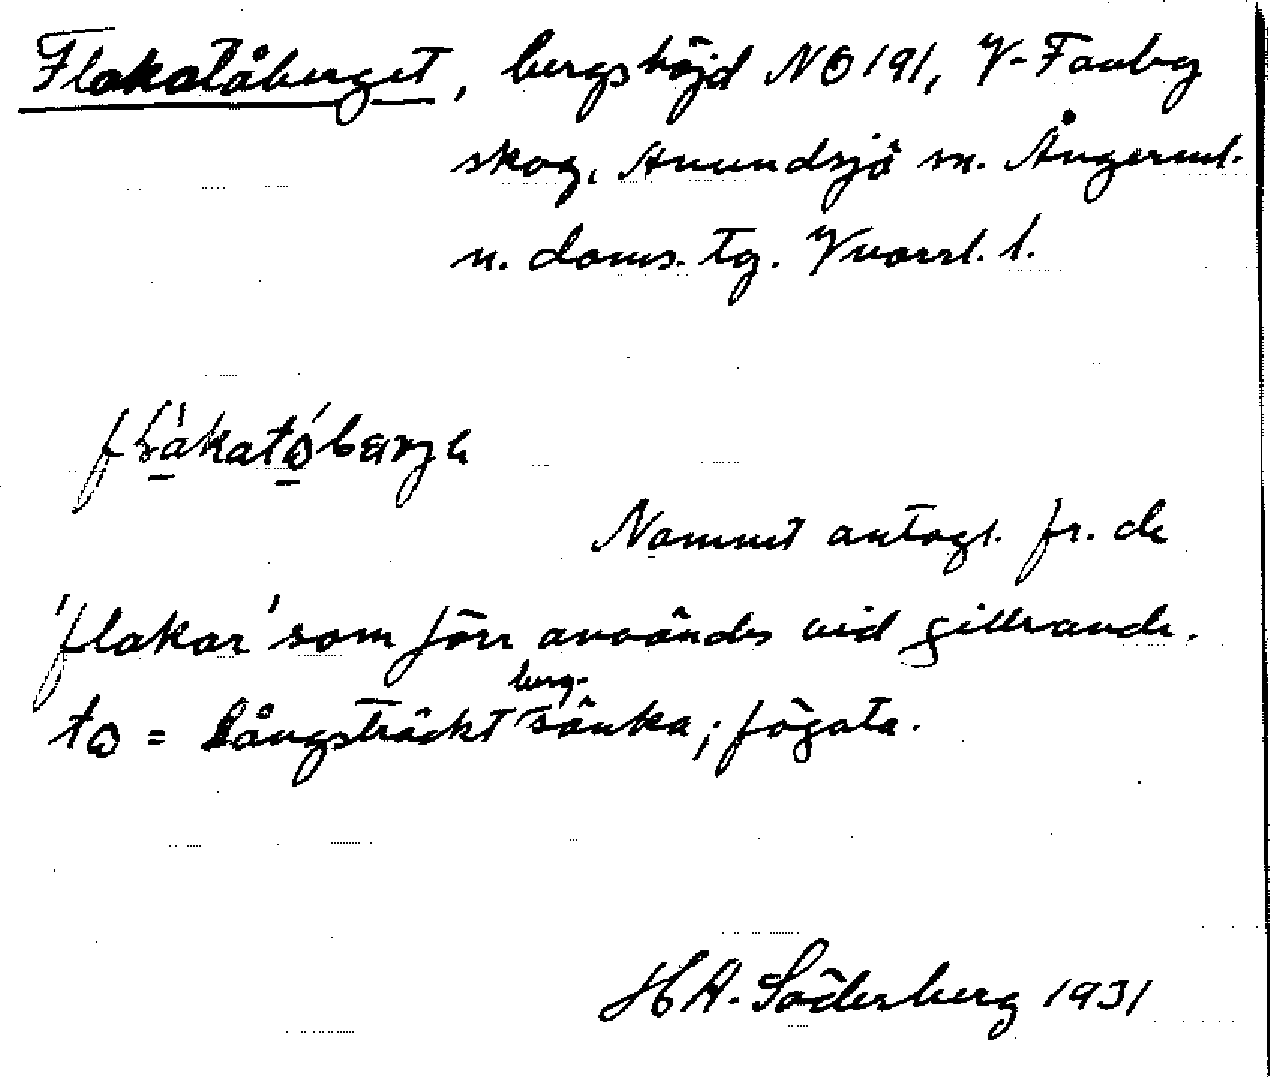 Flakatåberget, bergshöjd NO 191, V-Fanbg
skog, Anundsjö sn. Ångerml.
n. doms. tg. Vnorrl. l.
Namnet antagl. fr. de
'flakar' som förr användes vid gillrande.
tɷ = Långsträckt berg-sänka; fògata.
H A. Söderberg 1931